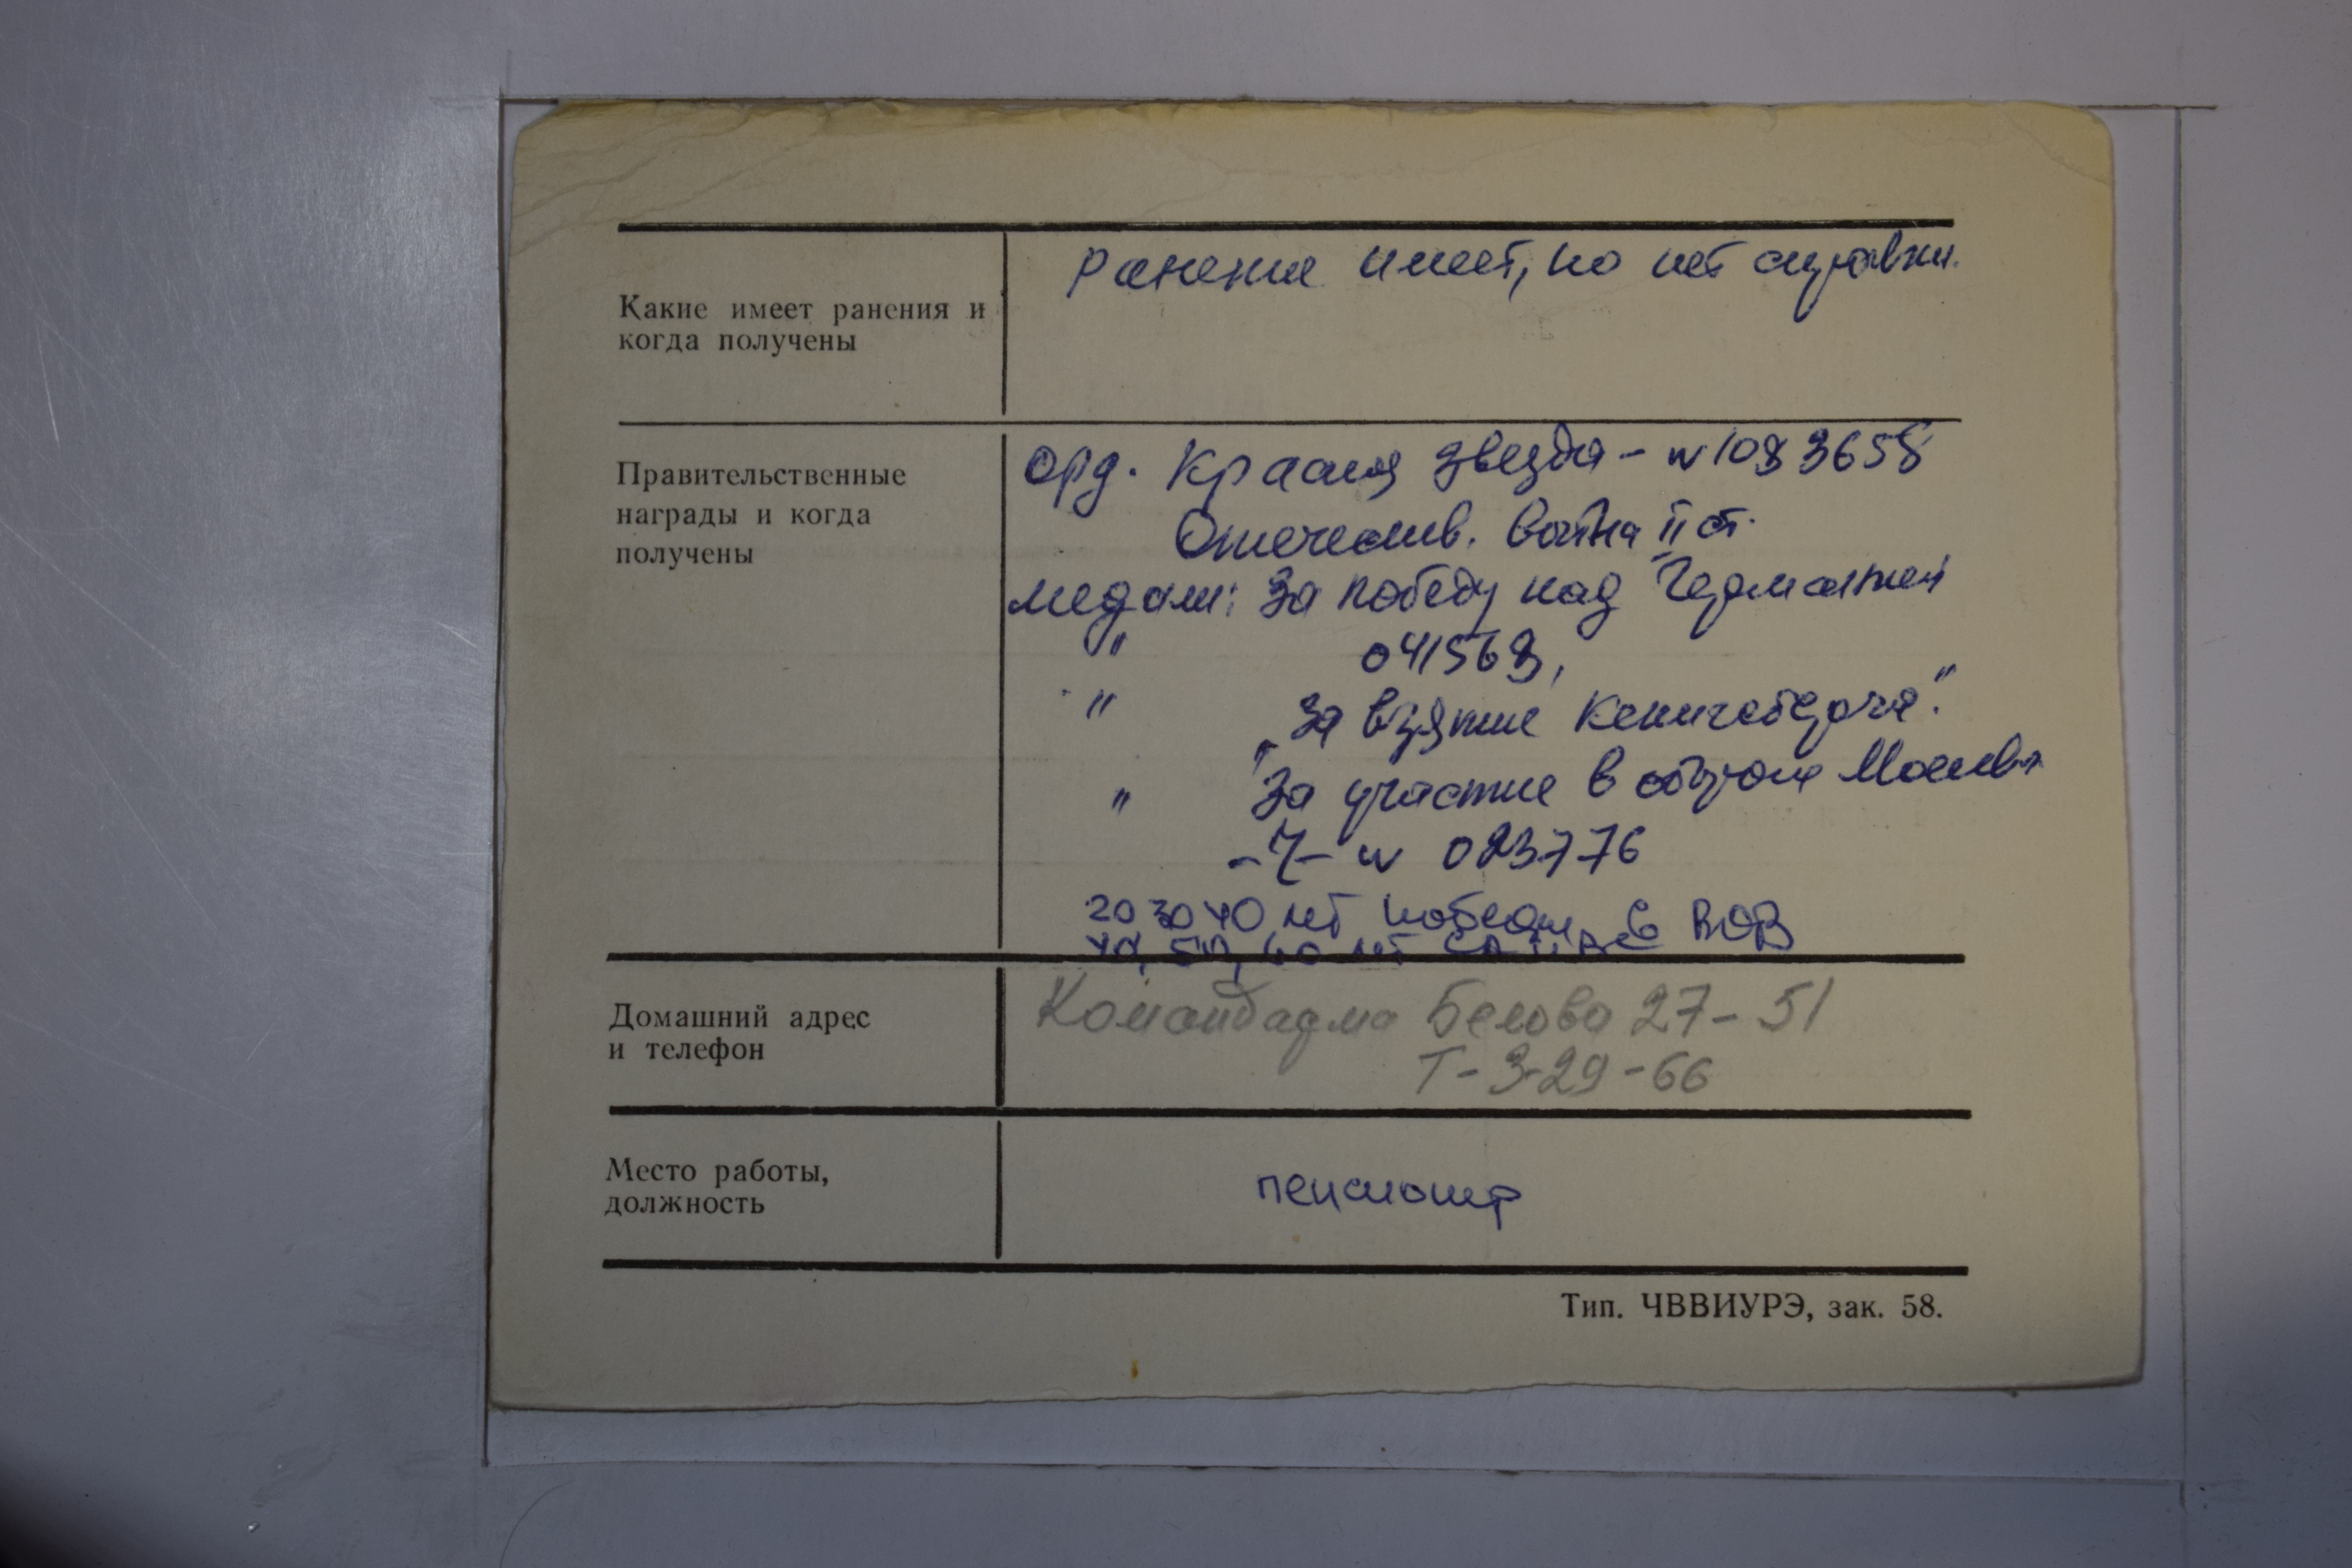 Ранение имеет, но нет справки.
Какие имеет ранения и
когда получены
Правительственные
награды и когда
получены
орд. Красная звезда - N 1083658
Отечеств. война II ст.
медали: За победу над Германией
" 041568,
" „За взятие Кенигсберга".
" За участие в обороне Москвы
-"- N 023776
20 30 40 лет победы в ВОВ
40, 50, 60 лет СА и
Домашний адрес
и телефон
Командарма Белова 27-51
Т-3-29-66
Место работы,
должность
пенсионер
Тип. ЧВВИУРЭ, зак. 58.